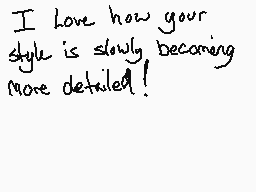 I Love how your
style is slowly becoming
more detailed!